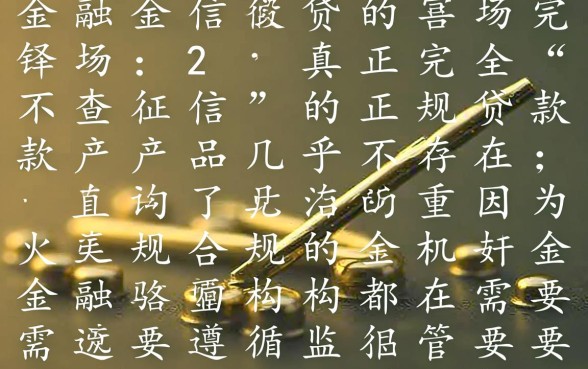 金融金信 贷的 场完
铎场：2 · 真正完全“
不查征信”的正规贷款
款产产品几乎不存在；
· 直 了 重因为
火 规合规的金机奸金
金融骆 构构都在需要
需 要遵循监 管要要